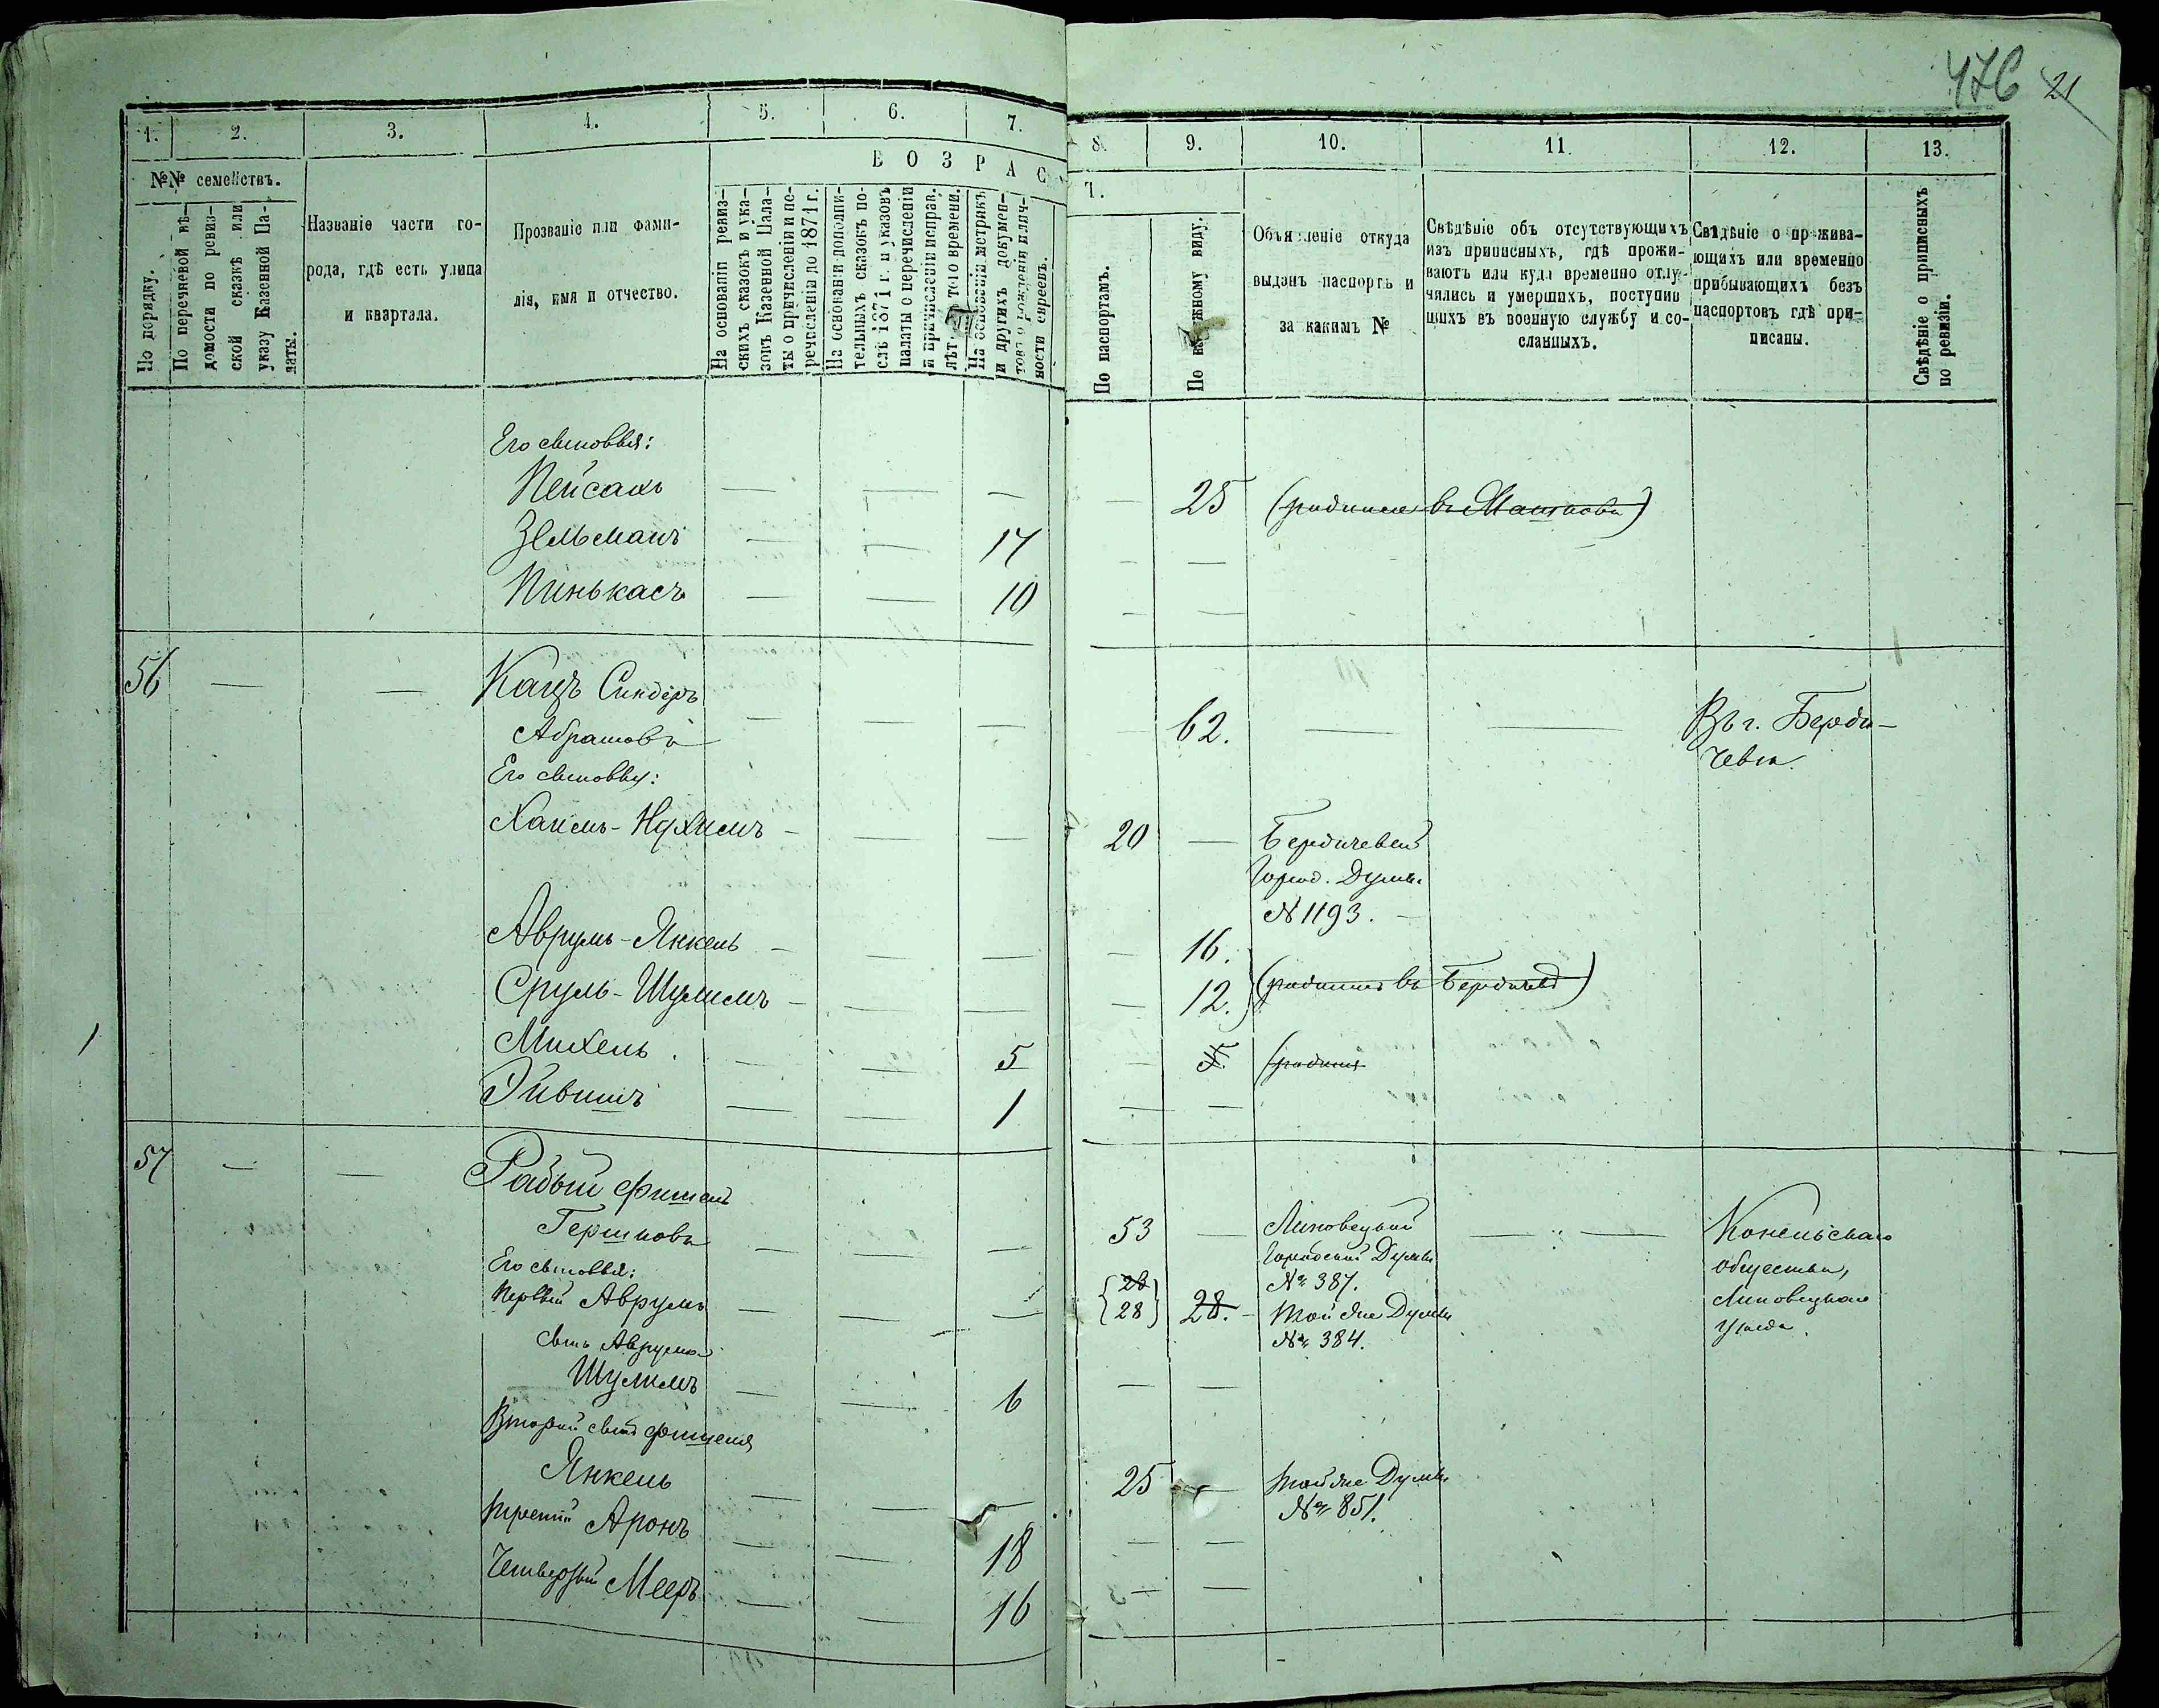 476 21
1. 2. 3. 4. 5. 6. 7. 8. 9. 10. 11. 12. 13.
№№ семействъ.
По порядку.
По перечневой вѣ-
домости по ревиз-
ской сказкѣ или
указу Казенной Па-
латы.
Названіе части го-
рода, гдѣ есть улица
и квартала.
Прозваніе или фами-
лія, имя и отчество.
ВОЗРАС
Т.
На основаніи ревиз-
скихъ сказокъ и ука-
зовъ Казенной Пала-
ты о причисленіи и пе-
речисленіи до 1871 г.
На основаніи дополни-
тельныхъ сказокъ по-
слѣ 1871 г. и указовъ
палаты о перечисленіи
и причисленіи исправ.
лѣт. по
времени.
На основаніи метрикъ
и другихъ докумен-
товъ о рожденіи и лич-
ности евреевъ.
По паспортамъ.
По
виду.
Объявленіе откуда
выданъ паспортъ и
за какимъ №
Свѣдѣніе объ отсутствующихъ
изъ приписныхъ, гдѣ прожи-
ваютъ или куда временно отлу-
чились и умершихъ, поступив
шихъ въ военную службу и со-
сланныхъ.
Свѣдѣніе о прожива-
ющихъ или временно
прибывающихъ безъ
паспортовъ гдѣ при-
писаны.
Свѣдѣніе о приписныхъ
по ревизіи.
Его сыновья:
Пейсахъ — — — — 25 (родился въ
Зельманъ — — 17 — —
Пинькасъ — — 10 — —
56 — — Кацъ Синдеръ
Абрамовъ — — — — 62. — — Въ г. Берди-
чева
Его сыновья:
Хаимъ-Нухимъ — — — 20 — Бердичевск
Город. Думы
N 1193. —
Аврумъ-Янкель — — — — 16.
Сруль-Шулимъ — — — — 12. (родились въ Бердичевѣ)
Михель — — 5 — 5. (родился
Эйвишъ — — 1 — —
57 — — Рабый Фишель
Гершковъ — — — 53 — Липовецкой
Городской Думы
№ 387. — — Конельскаго
общества,
Липовецкаго
уѣзда.
Его сыновья:
Первый Аврумъ — — — 28 28 28. — той же Думы
№ 384.
Сынъ Аврума
Шулимъ — — 6 — —
Второй сынъ Фишеля
Янкель — — — 25 — той же Думы
№ 851.
третій Аронъ — — 18 — —
Четвертый Мееръ — — 16 — —